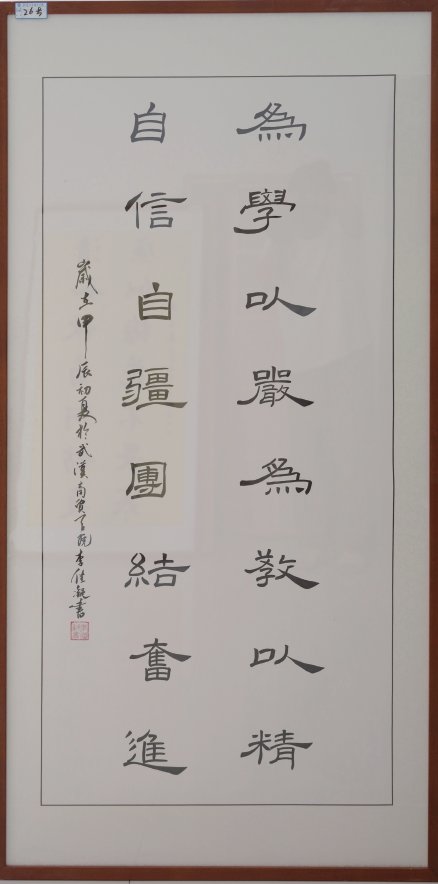 為學以嚴為教以精
自信自疆團結奮進
歲在甲辰初夏於武漢商貿學院李佳
26号